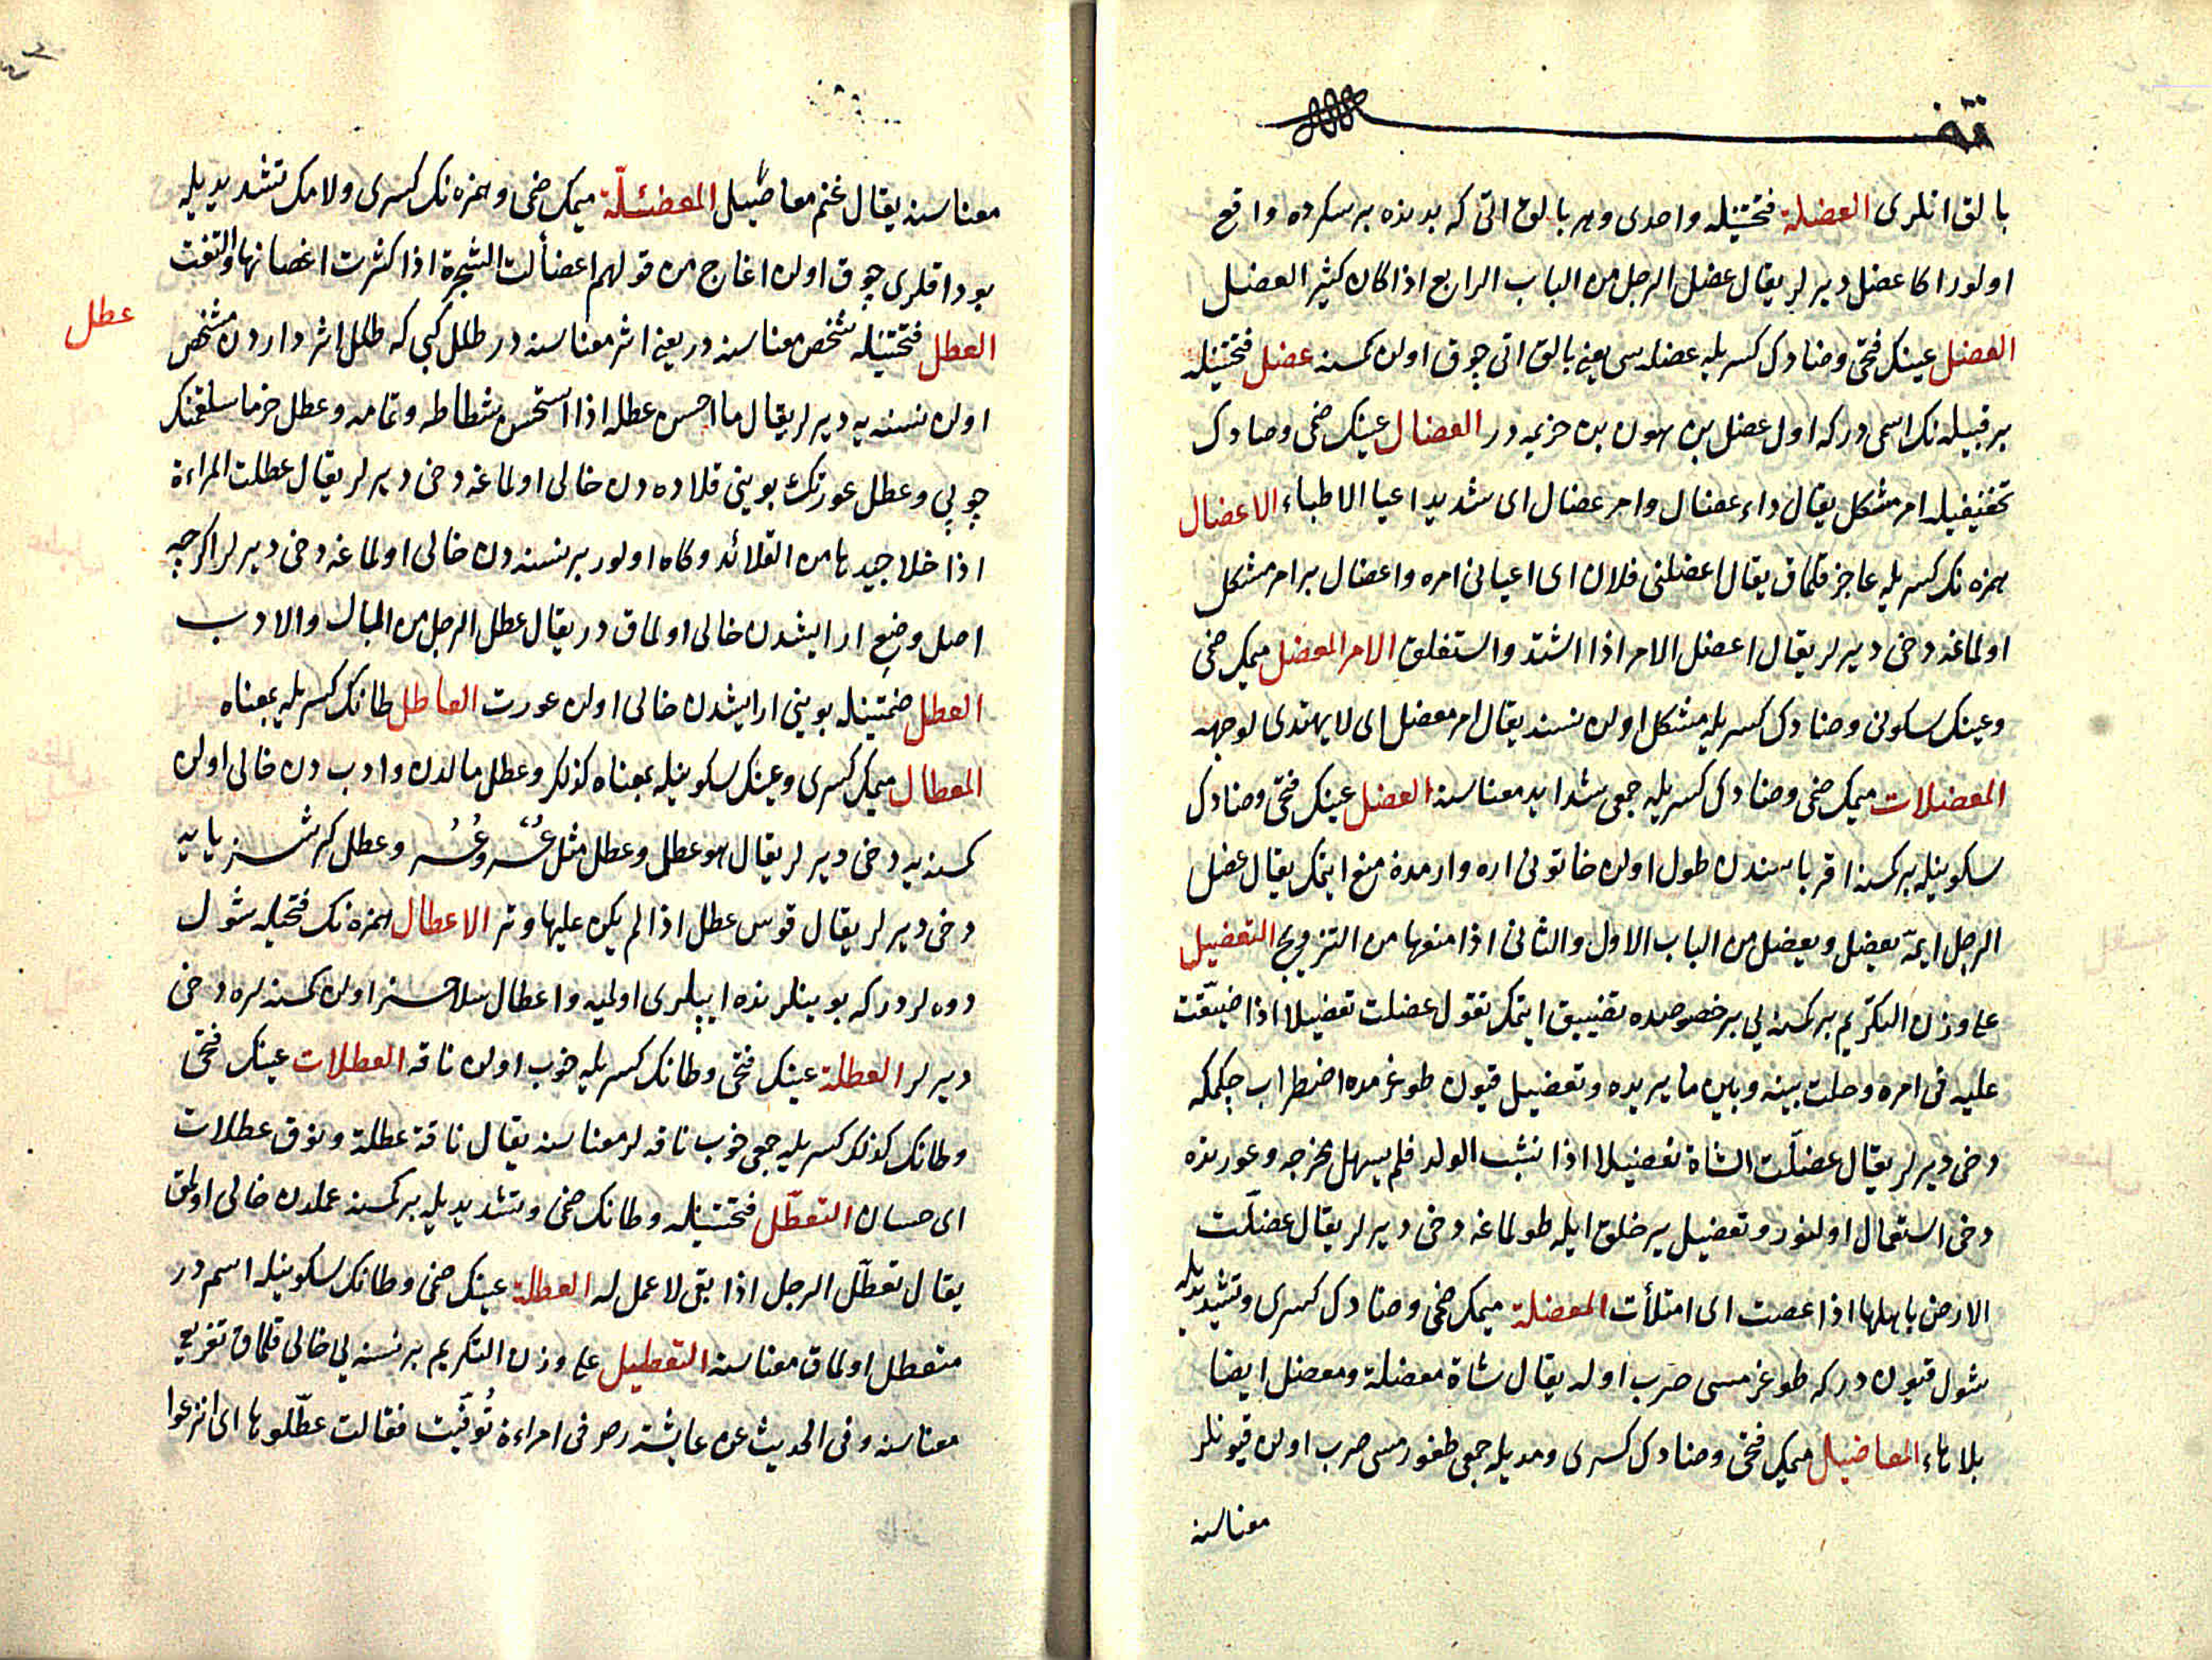 بالق اتلرى العضلة فتحتينله واحدى وهر بالق اتى كه بدنده بر سكرده واقع
اولور اكا عضل ديرلر يقال عضل الرجل من الباب الرابع اذا كان كثير العضل
العضل عينك فتحى وضادك كسريله عضله سى يعنى بالق اتى چوق اولن كمسنه عضل فتحتينله
بر قبيله نك اسمى در كه اول عضل بن هون بن خزيمه در العضال عينك ضمى وضادك
تخفيفيله امر مشكل يقال داء عضال وامر عضال اى شديد اعيا الاطباء الاعضال
همزه نك كسريله عاجز قلماق يقال اعضلنى فلان اى اعيانى امره واعضال بر امر مشكل
اولماغه دخى ديرلر يقال اعضل الامر اذا اشتد واستغلق الامر المعضل ميمك ضمى
وعينك سكونى وضادك كسريله مشكل اولن نسنه يقال امر معضل اى لا يهتدى لوجهه
المعضلات ميمك ضمى وضادك كسريله جمعى شدايد معناسنه العضل عينك فتحى وضادك
سكونيله بر كمسنه اقرباسندن طول اولن خاتونى اره وارمدن منع ايتمك يقال عضل
الرجل ايمه يعضل ويعضل من الباب الاول والثانى اذا منعها من التزويج التعضيل
على وزن التكريم بر كمسنه يى بر خصوصده تضييق ايتمك تقول عضلت تعضيلا اذا ضيّقت
عليه فى امره وحلت بينه وبين ما يريده وتعضيل قيون طوغرمده اضطراب چكمكه
دخى ديرلر يقال عضلّت الشاة تعضيلا اذا نشب الولد فلم يسهل مخرجه وعورتده
دخى استعمال اولنور وتعضيل ير خلق ايله طولماغه دخى ديرلر يقال عضلّت
الارض باهلها اذا غصت اى امتلأت المعضلة ميمك ضمى وضادك كسرى وتشديديله
شول قيون در كه طوغرمسى صرب اوله يقال شاة معضلة ومعضل ايضا
بلا هاء المعاضيل ميمك فتحى وضادك كسرى ومديله جمعى طغورمسى صرب اولن قيونلر
معناسنه
معناسنه يقال غنم معاضيل المعضئلّة ميمك ضمى وهمزه نك كسرى ولامك تشديديله
بوداقلرى چوق اولن اغاج من قولهم اعضألت الشجرة اذا كثرت اغصانها والتفت
عطل
العطل فتحتينله شخص معناسنه در يعنى اثر معناسنه در طلل كبى كه طلل اثر داردن مشخص
اولن نسنه يه ديرلر يقال ما احسن عطله اذا استحسن شطاطه وتمامه وعطل خرما سلقمنك
چوپى وعطل عورتك بوينى قلاده دن خالى اولماغه دخى ديرلر يقال عطلت المراءة
اذا خلا جيدها من القلائد وكاه اولور بر نسنه دن خالى اولماغه دخى ديرلر اكرچه
اصل وضع ارايشدن خالى اولماق در يقال عطل الرجل من المال والادب
العطل ضمتينله بوينى ارايشدن خالى اولن عورت العاطل طانك كسريله بمعناه
المعطال ميمك كسرى وعينك سكونيله بمعناه كذلك وعطل مالدن وادبدن خالى اولن
كمسنه يه دخى ديرلر يقال هو عطل وعطل مثل عسر وعُسُر وعطل كرشسز يايه
دخى ديرلر يقال قوس عطل اذا لم يكن عليها وتر الاعطال همزه نك فتحيله شول
دوه لردر كه بوينلرنده ايپلرى اولميه واعطال سلاحسز اولن كمسنه لره دخى
ديرلر العطلة عينك فتحى وطانك كسريله خوب اولن ناقه العطلات عينك فتحى
وطانك كذلك كسريله جمعى خوب ناقه لر معناسنه يقال ناقة عطلة ونوق عطلات
اى حسان التعطّل فتحتينله وطانك ضمى وتشديديله بر كمسنه عملدن خالى اولمق
يقال تعطّل الرجل اذا بقى لا عمل له العطلة عينك ضمى وطانك سكونيله اسمدر
متعطل اولماق معناسنه التعطيل على وزن التكريم بر نسنه يى خالى قلماق تفريغ
معناسنه وفى الحديث عن عايشة رضى فى امراءة تُوفّيت فقالت عطّلوها اى انزعوا